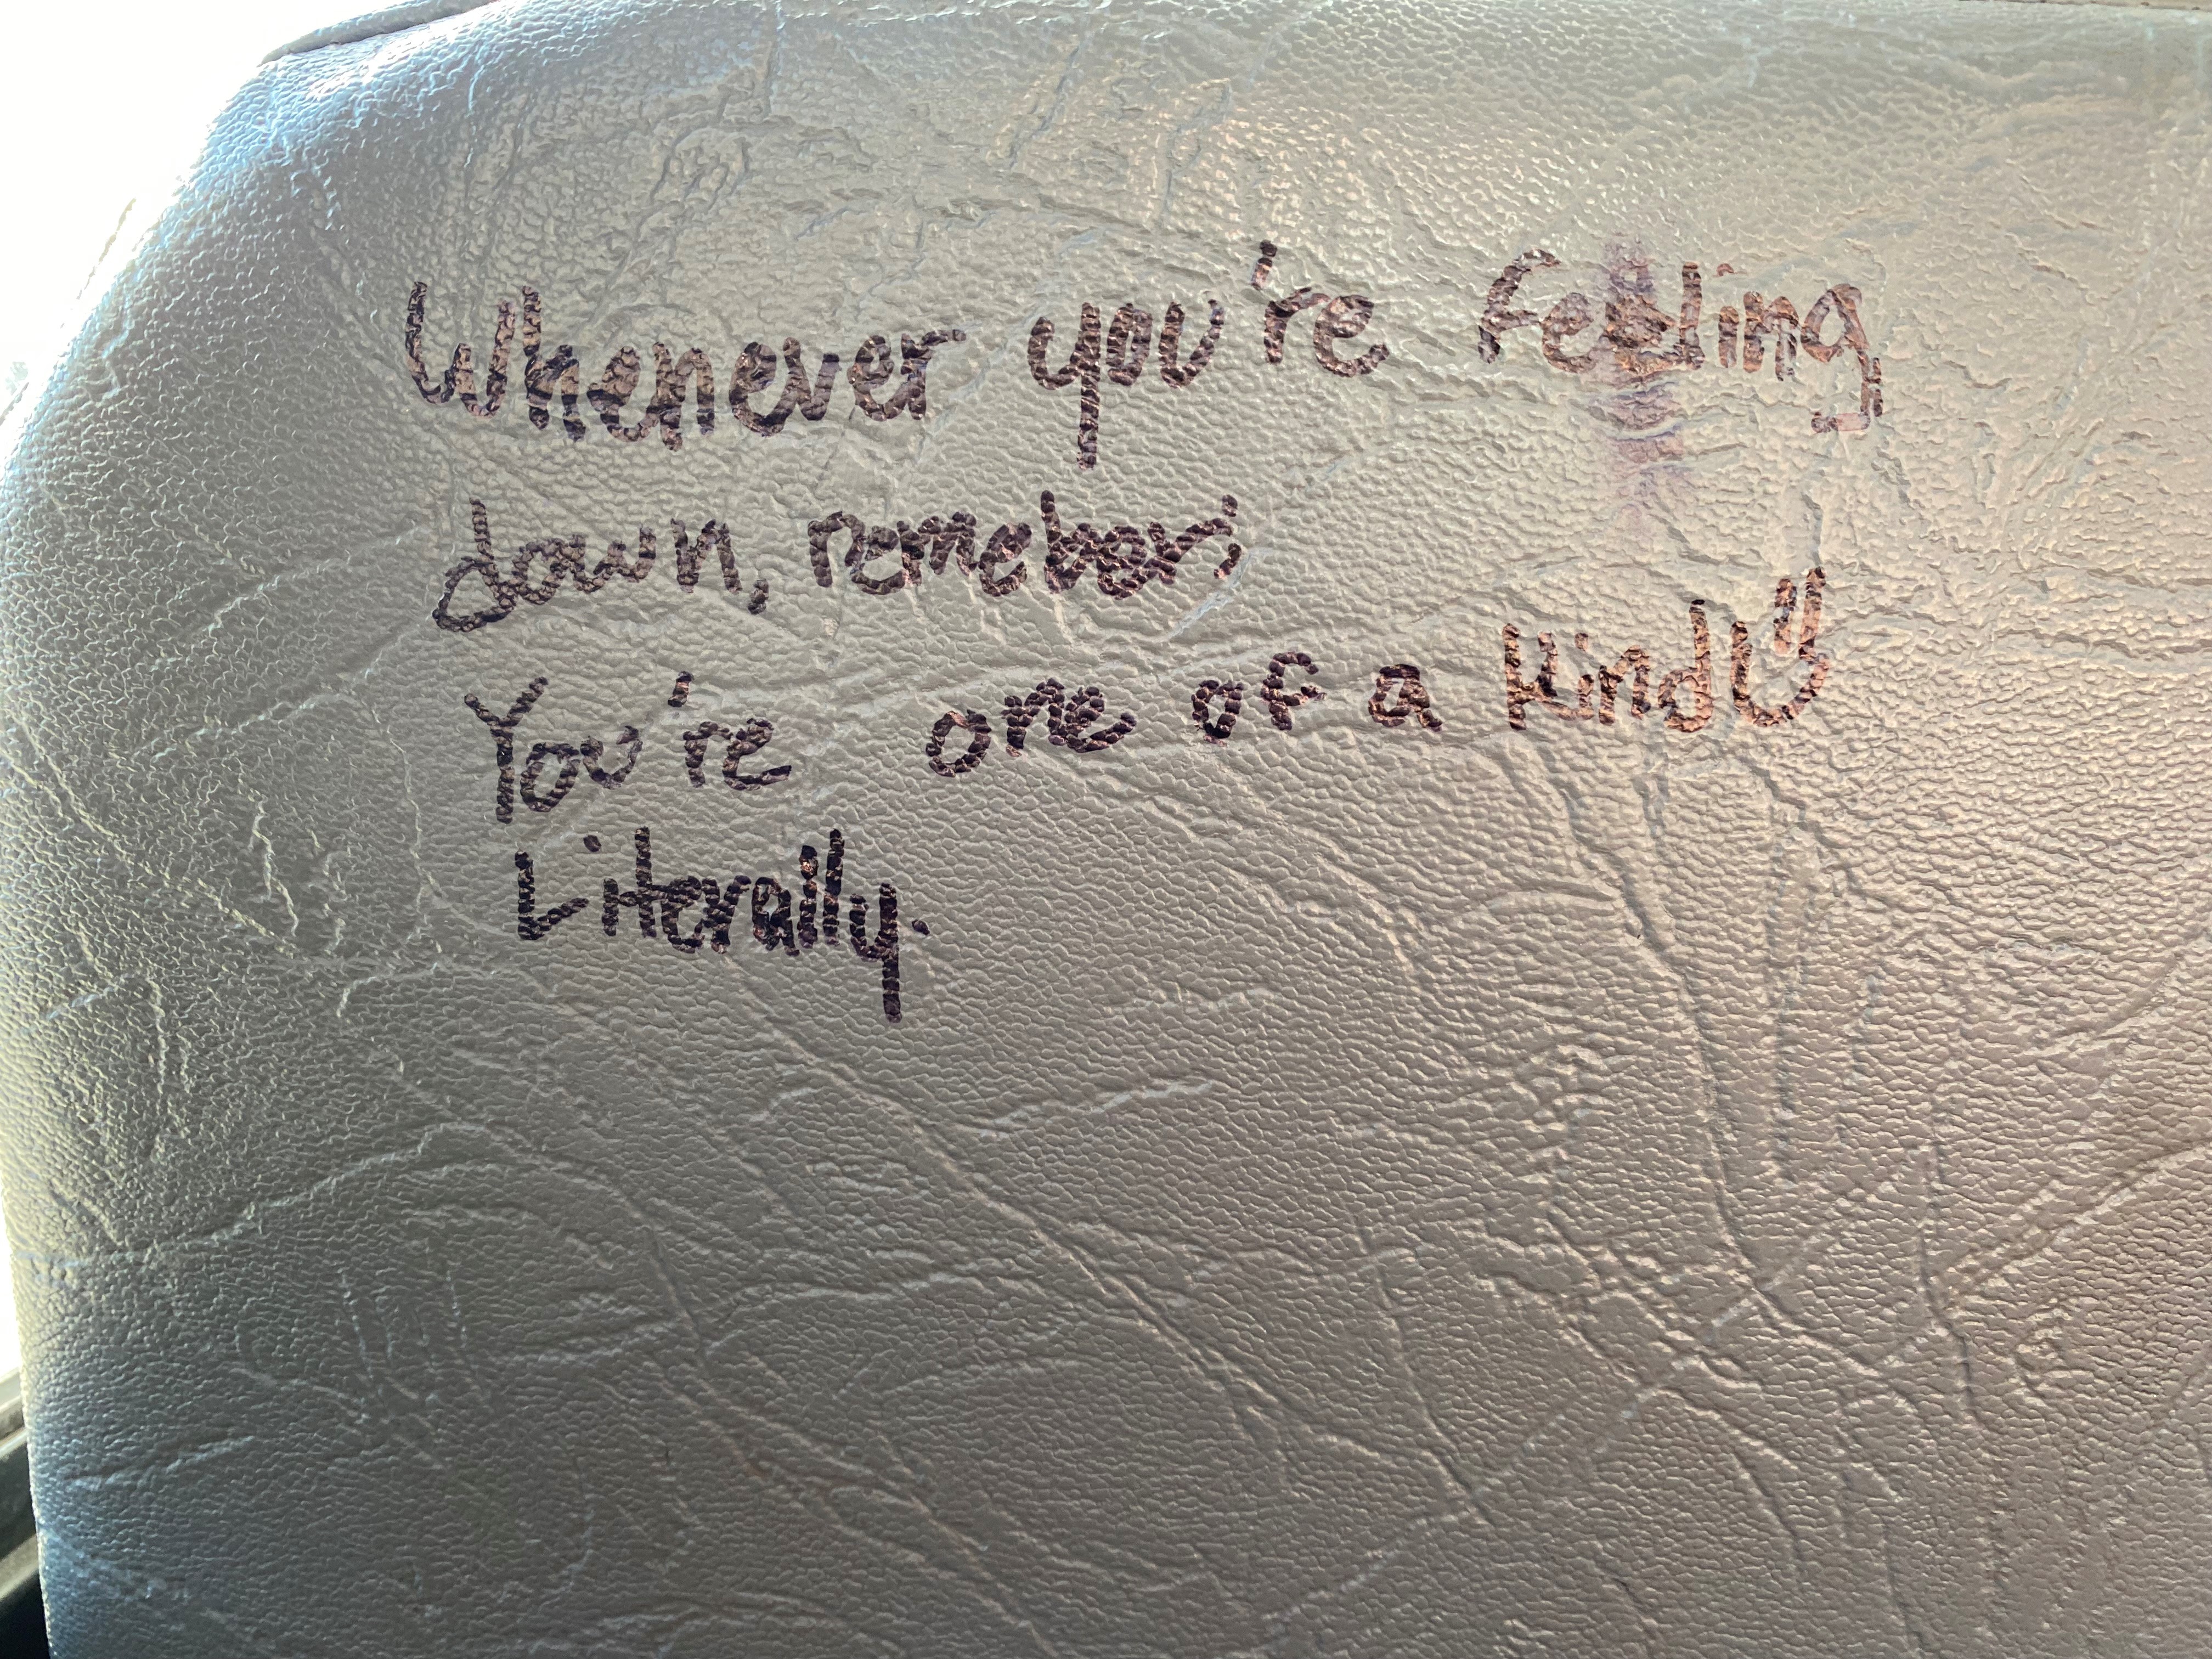 Whenever you're feeling
down, remeber;
You're one of a kind
Literally.